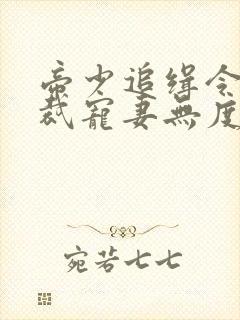 帝少追缉令
裁寵妻無度
宛若七七